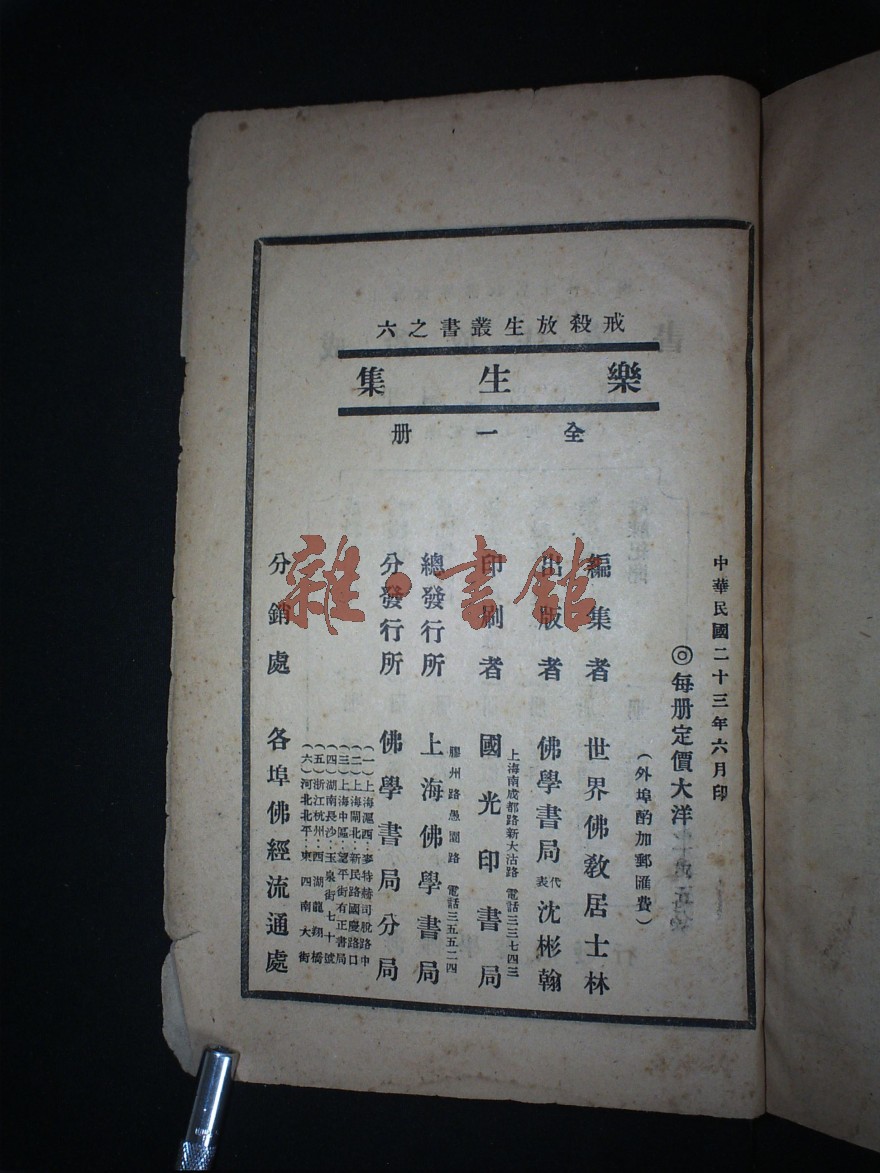 戒殺放生叢書之六
樂生集
全一册
中華民國二十三年六月印
◎每册定價大洋
（外埠酌加郵匯費）
編集者 世界佛敎居士林
出版者 佛學書局代表沈彬翰
上海南成都路新大沽路 電話三三七四三
印刷者 國光印書局
膠州路愚園路 電話三五五二四
總發行所 上海佛學書局
分發行所 佛學書局分局
（一）上海滬西：麥特赫司脫路中
（二）上海閘北：新民路國慶路口
（三）上海中區：望平街有正書局
（四）湖南長沙：玉泉街七十號
（五）浙江杭州：西湖龍翔橋
（六）河北北平：東四南大街
分銷處 各埠佛經流通處
雜·書館